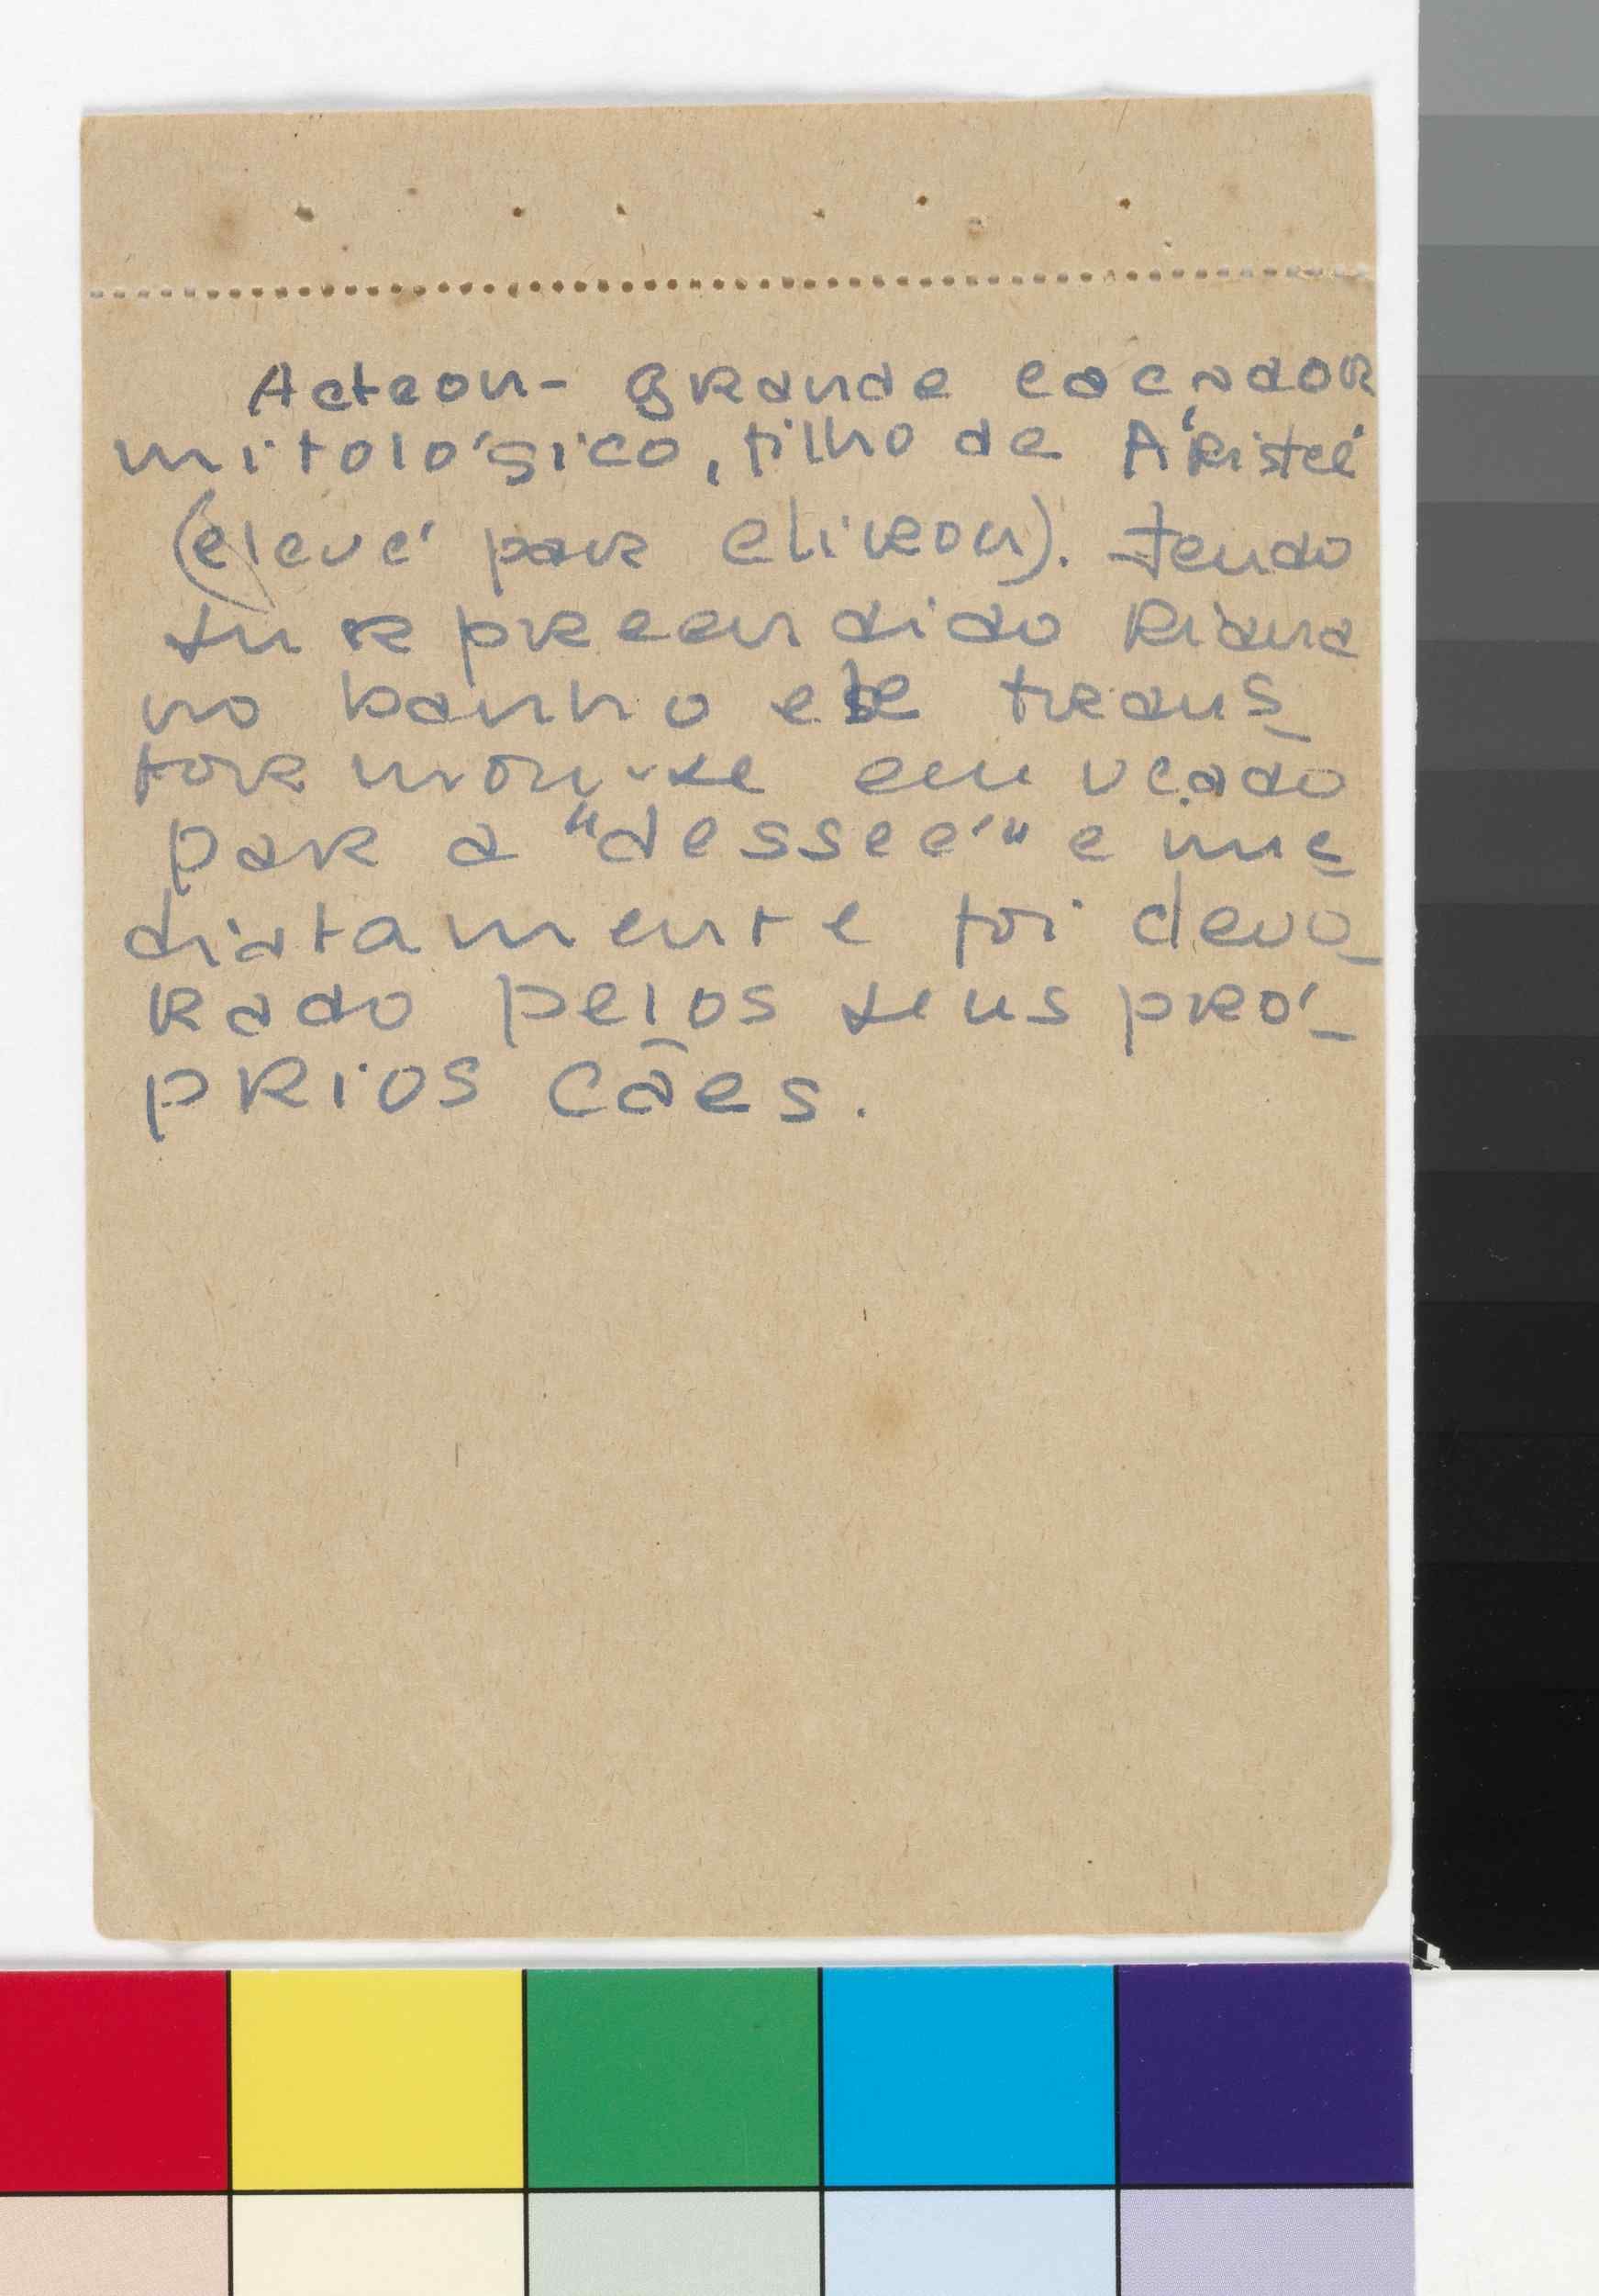 Acteon- grande caçador
mitológico, filho de Áristeé
(elevé par Chiron). Tendo
surpreendido Diana
no banho ele trans_
formou-se em veado
par a "desseé" e ime_
diatamente foi devo_
rado pelos seus pró_
prios cães.